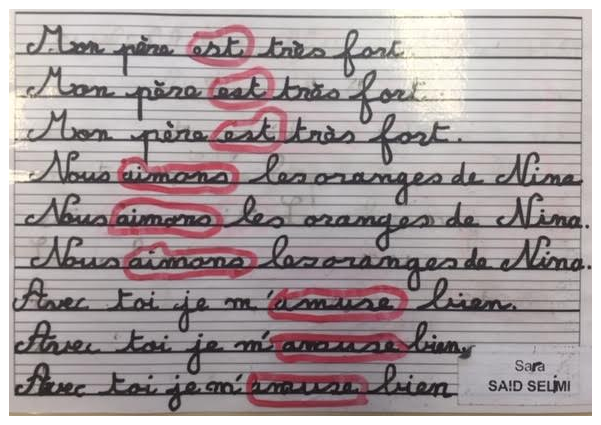 Mon père est très fort
Mon père est très fort
Mon père est très fort.
Nous aimons les oranges de Nina
Nous aimons les oranges de Nina.
Nous aimons les oranges de Nina.
Avec toi je m'amuse bien.
Avec toi je m'amuse bien,
Avec toi je m'amuse bien
Sara
SAID SELIMI